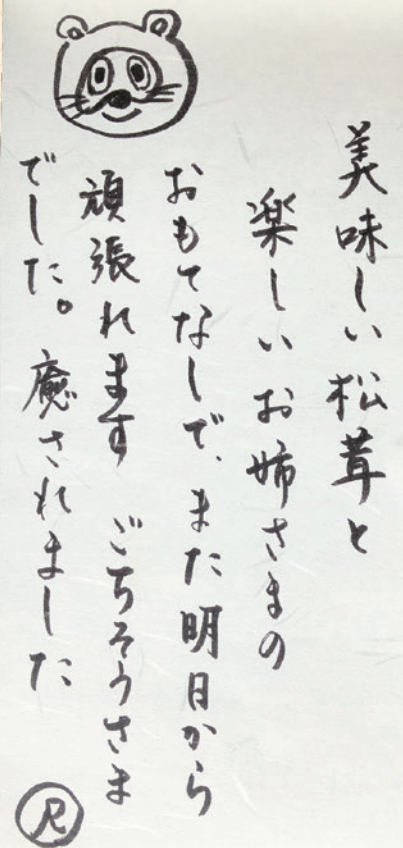 美味しい松茸と
楽しいお姉さまの
おもてなしで、また明日から
頑張れます ごちそうさま
でした。癒されました